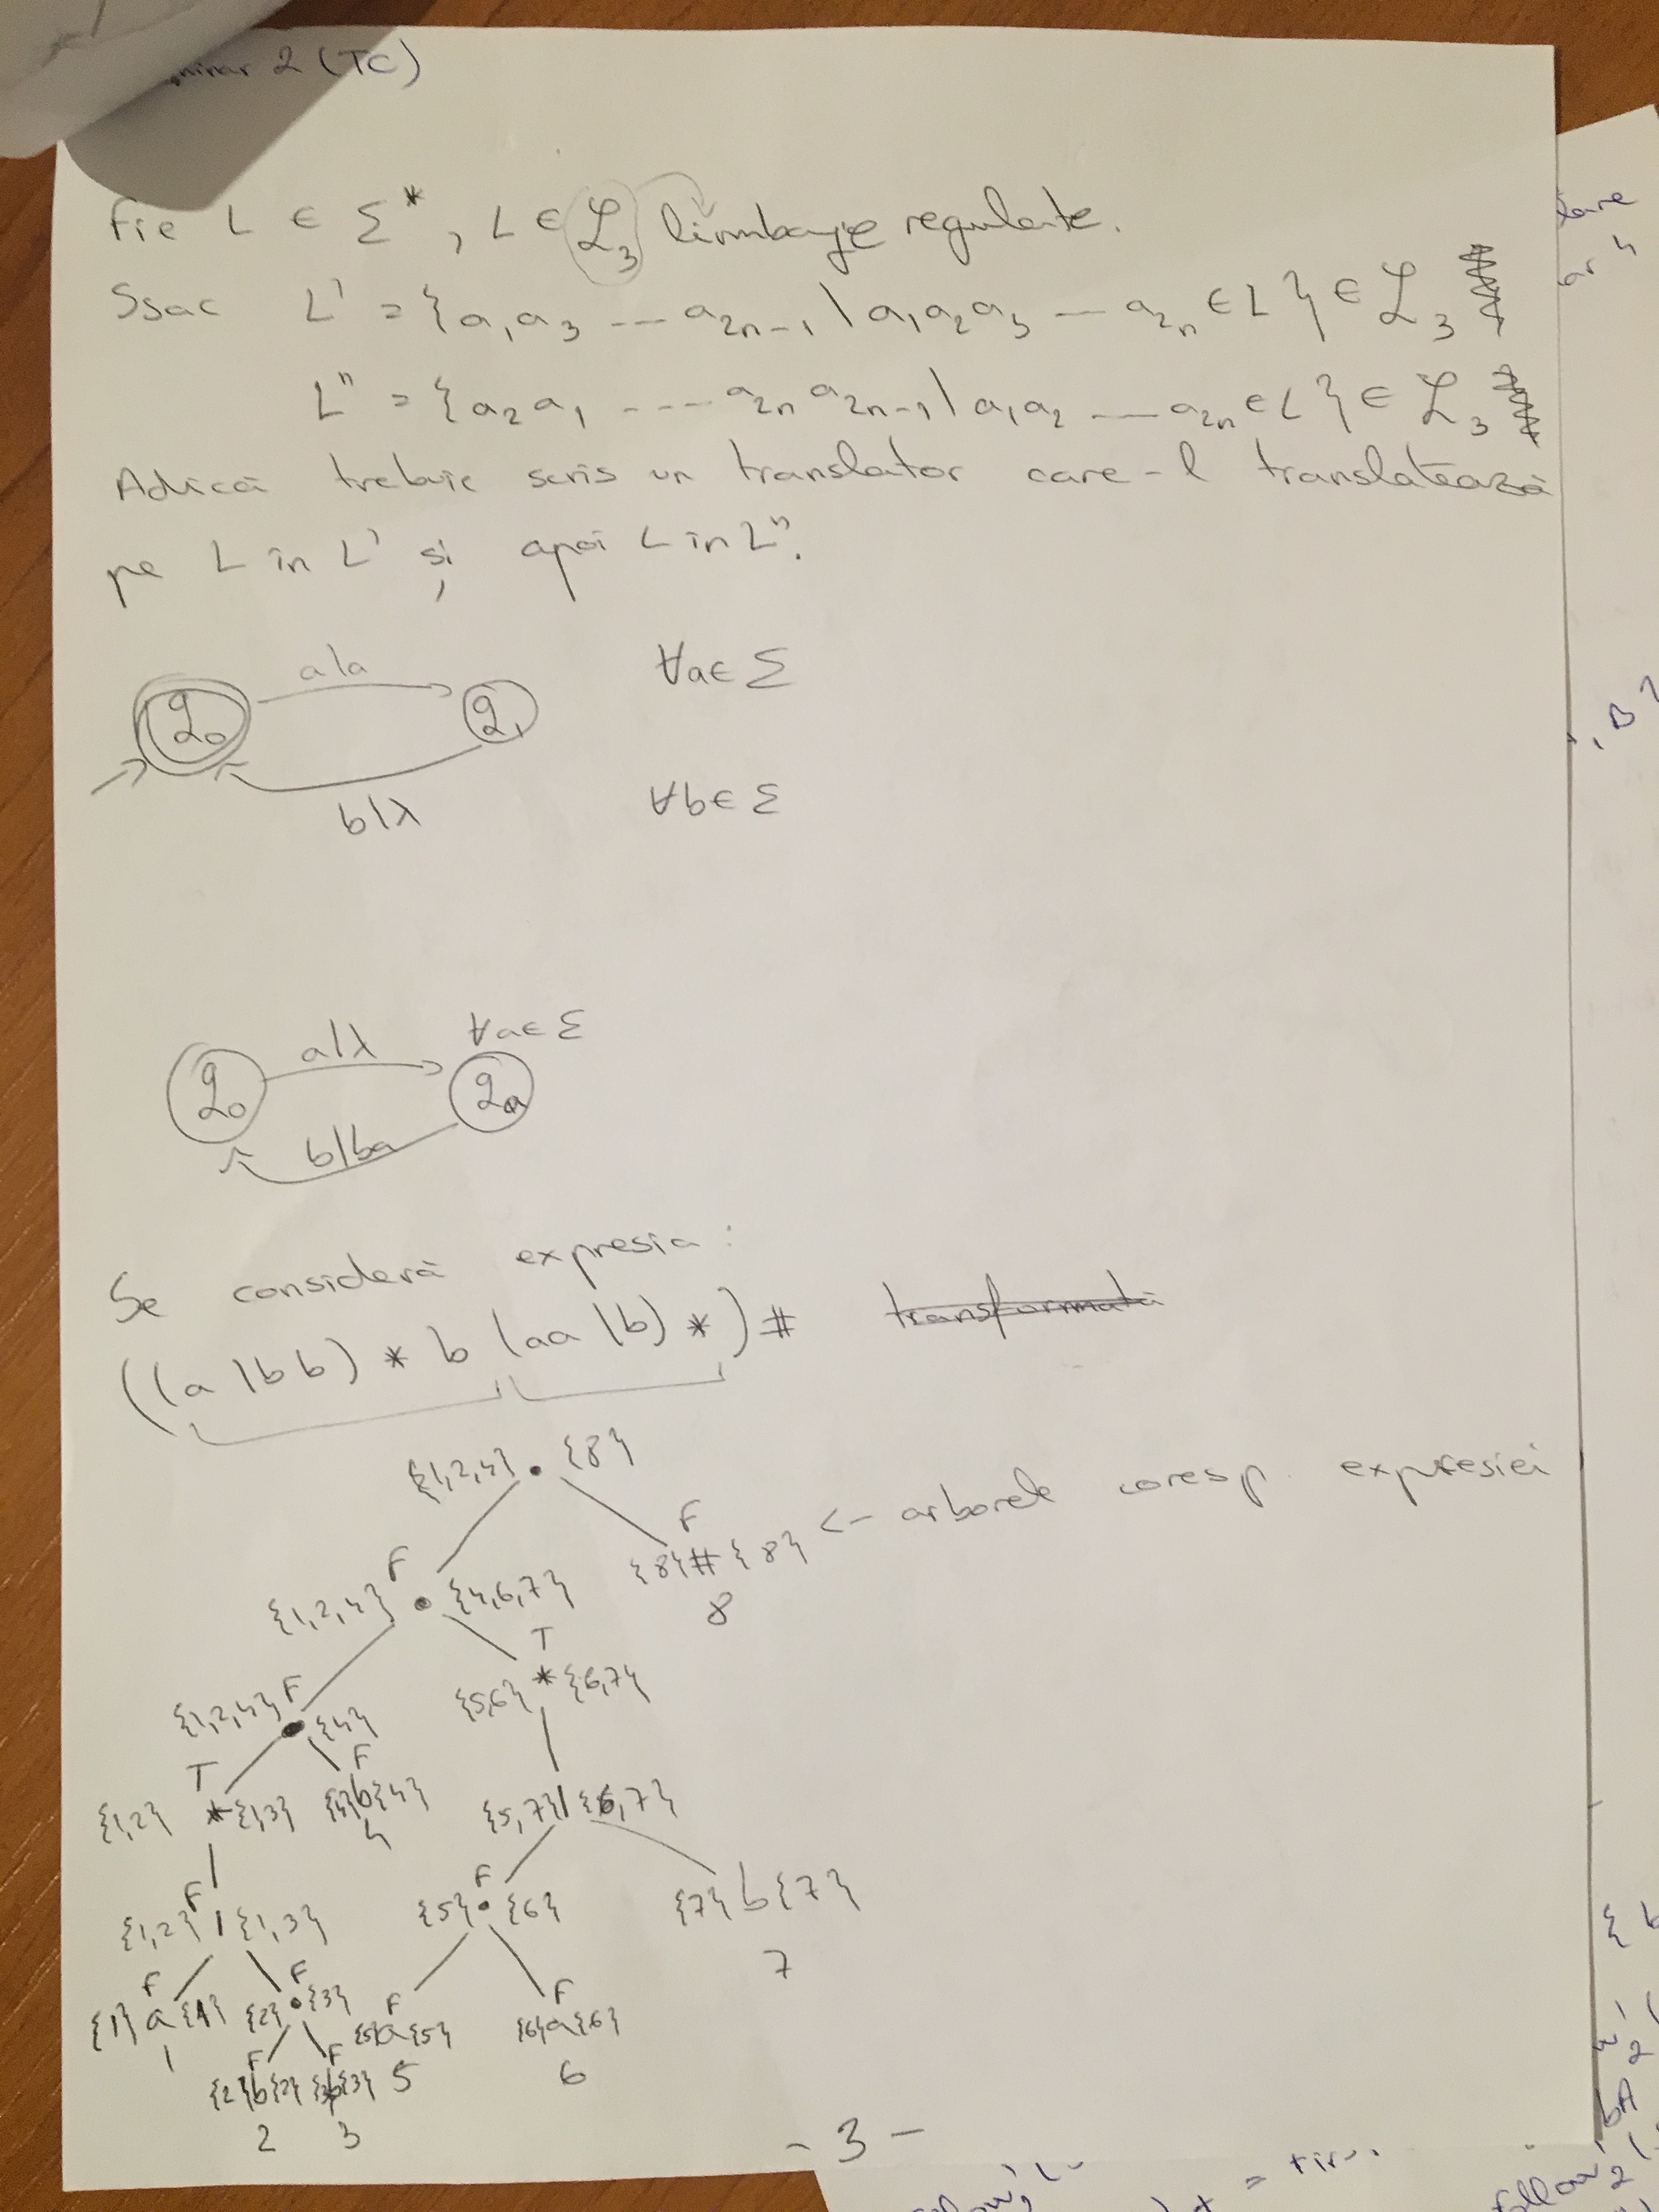 2 (TC)
Fie L ∈ Σ*, L ∈ ℒ₃ limbaje regulate.
Ssac L' = {a₁a₃ --- a₂ₙ₋₁ | a₁a₂a₃ --- a₂ₙ ∈ L} ∈ ℒ₃
L" = {a₂a₁ ---- a₂ₙa₂ₙ₋₁ | a₁a₂ --- a₂ₙ ∈ L} ∈ ℒ₃
Adică trebuie scris un translator care-l translatează
pe L în L' și apoi L în L".
a|a ∀a∈Σ
q₀ q₁
b|λ ∀b∈Σ
a|λ ∀a∈Σ
q₀ qₐ
b|ba
Se consideră expresia:
((a|bb)*b(aa|b)*)# transformată
{1,2,4} • {8}
F {8}#{8} <- arborele coresp. expresiei
8
F {1,2,4} • {4,6,7}
T {5,6} * {6,7}
F {1,2,4} • {4}
T {1,2} * {1,3} F {4}b{4} {5,7} | {6,7}
4
F {1,2} | {1,3} F {5} • {6} {7}b{7}
7
F {1}a{1} F {2} • {3} F {5}a{5} F {6}a{6}
1 5 6
F {2}b{2} F {3}b{3}
2 3
- 3 -
{ b
bA
follow